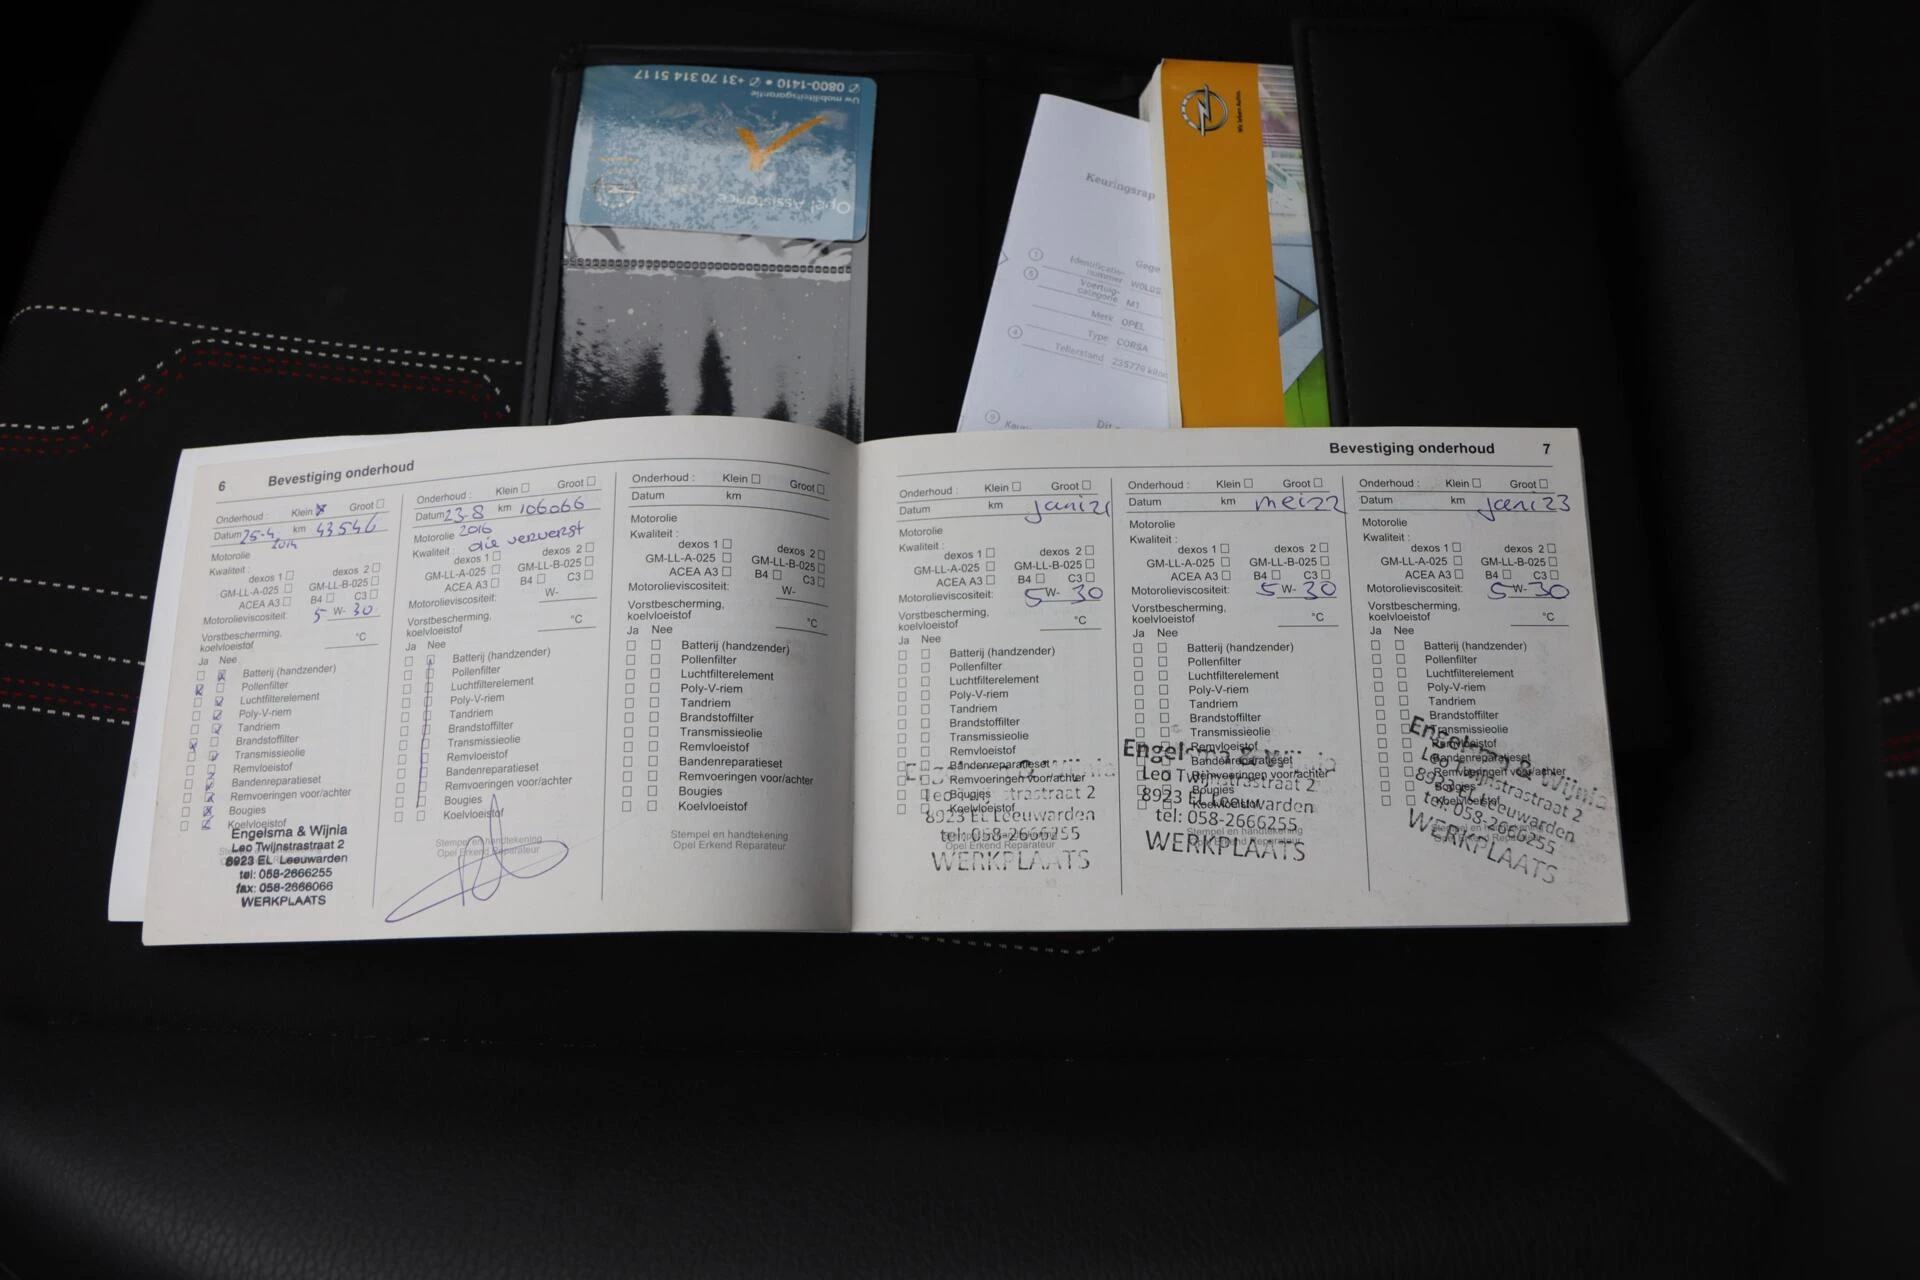 Opel Assistance
Uw mobiliteitsgarantie
0800-1410 • +31 70 314 51 17
Keuringsrap
Gege
1
Identificatie-
nummer
5
Voertuig-
categorie M1
Merk OPEL
4
Type CORSA
Tellerstand 235779
9
Dit
Wir leben Autos.
6 Bevestiging onderhoud
Onderhoud : Klein Groot
Datum 25-4 km 43546
2014
Motorolie
Kwaliteit :
dexos 1 dexos 2
GM-LL-A-025 GM-LL-B-025
ACEA A3 B4 C3
Motorolieviscositeit: 5 W- 30
Vorstbescherming,
koelvloeistof °C
Ja Nee
Batterij (handzender)
Pollenfilter
Luchtfilterelement
Poly-V-riem
Tandriem
Brandstoffilter
Transmissieolie
Remvloeistof
Bandenreparatieset
Remvoeringen voor/achter
Bougies
Koelvloeistof
Engelsma & Wijnia
Leo Twijnstrastraat 2
8923 EL Leeuwarden
tel: 058-2666255
fax: 058-2666066
WERKPLAATS
Onderhoud : Klein Groot
Datum 23-8 km 106066
Motorolie 2016
Kwaliteit : olie ververst
dexos 1 dexos 2
GM-LL-A-025 GM-LL-B-025
ACEA A3 B4 C3
Motorolieviscositeit: W-
Vorstbescherming,
koelvloeistof °C
Ja Nee
Batterij (handzender)
Pollenfilter
Luchtfilterelement
Poly-V-riem
Tandriem
Brandstoffilter
Transmissieolie
Remvloeistof
Bandenreparatieset
Remvoeringen voor/achter
Bougies
Koelvloeistof
Stempel en handtekening
Opel Erkend Reparateur
Onderhoud : Klein Groot
Datum km
Motorolie
Kwaliteit :
dexos 1 dexos 2
GM-LL-A-025 GM-LL-B-025
ACEA A3 B4 C3
Motorolieviscositeit: W-
Vorstbescherming,
koelvloeistof °C
Ja Nee
Batterij (handzender)
Pollenfilter
Luchtfilterelement
Poly-V-riem
Tandriem
Brandstoffilter
Transmissieolie
Remvloeistof
Bandenreparatieset
Remvoeringen voor/achter
Bougies
Koelvloeistof
Stempel en handtekening
Opel Erkend Reparateur
Bevestiging onderhoud 7
Onderhoud : Klein Groot
Datum km juni 21
Motorolie
Kwaliteit :
dexos 1 dexos 2
GM-LL-A-025 GM-LL-B-025
ACEA A3 B4 C3
Motorolieviscositeit: 5 W- 30
Vorstbescherming,
koelvloeistof °C
Ja Nee
Batterij (handzender)
Pollenfilter
Luchtfilterelement
Poly-V-riem
Tandriem
Brandstoffilter
Transmissieolie
Remvloeistof
Bandenreparatieset
Remvoeringen voor/achter
Bougies
Koelvloeistof
8923 EL Leeuwarden
tel: 058-2666255
Opel Erkend Reparateur
WERKPLAATS
Onderhoud : Klein Groot
Datum km mei 22
Motorolie
Kwaliteit :
dexos 1 dexos 2
GM-LL-A-025 GM-LL-B-025
ACEA A3 B4 C3
Motorolieviscositeit: 5 W- 30
Vorstbescherming,
koelvloeistof °C
Ja Nee
Batterij (handzender)
Pollenfilter
Luchtfilterelement
Poly-V-riem
Tandriem
Brandstoffilter
Transmissieolie
Remvloeistof
Bandenreparatieset
Remvoeringen voor/achter
Bougies
Koelvloeistof
Engelsma & Wijnia
Leo Twijnstrastraat 2
8923 EL Leeuwarden
tel: 058-2666255
Stempel en handtekening
WERKPLAATS
Onderhoud : Klein Groot
Datum km juni 23
Motorolie
Kwaliteit :
dexos 1 dexos 2
GM-LL-A-025 GM-LL-B-025
ACEA A3 B4 C3
Motorolieviscositeit: 5 W- 30
Vorstbescherming,
koelvloeistof °C
Ja Nee
Batterij (handzender)
Pollenfilter
Luchtfilterelement
Poly-V-riem
Tandriem
Brandstoffilter
Transmissieolie
Remvloeistof
Bandenreparatieset
Remvoeringen voor/achter
Bougies
Koelvloeistof
Engelsma & Wijnia
Leo Twijnstrastraat 2
8923 EL Leeuwarden
tel: 058-2666255
WERKPLAATS